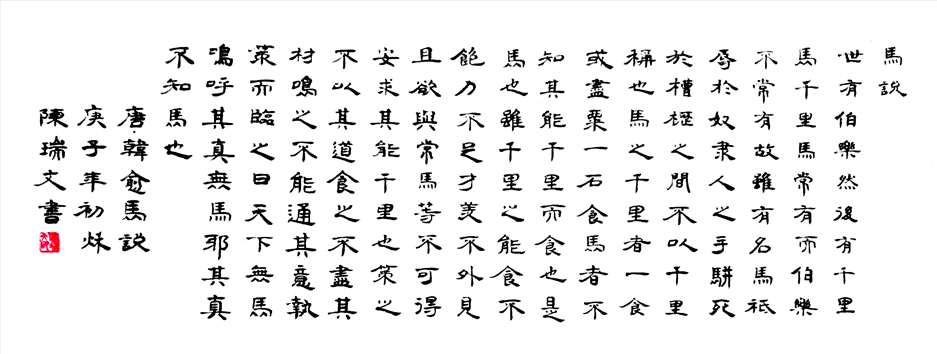 馬說
世有伯樂然後有千里
馬千里馬常有而伯樂
不常有故雖有名馬祗
辱於奴隶人之手駢死
於槽櫪之間不以千里
稱也馬之千里者一食
或盡粟一石食馬者不
知其能千里而食也是
馬也雖千里之能食不
飽力不足才美不外見
且欲與常馬等不可得
安求其能千里也策之
不以其道食之不盡其
材鳴之不能通其意執
策而臨之曰天下無馬
嗚呼其真無馬耶其真
不知馬也
唐·韓愈馬説
庚子年初秌
陳瑞文書